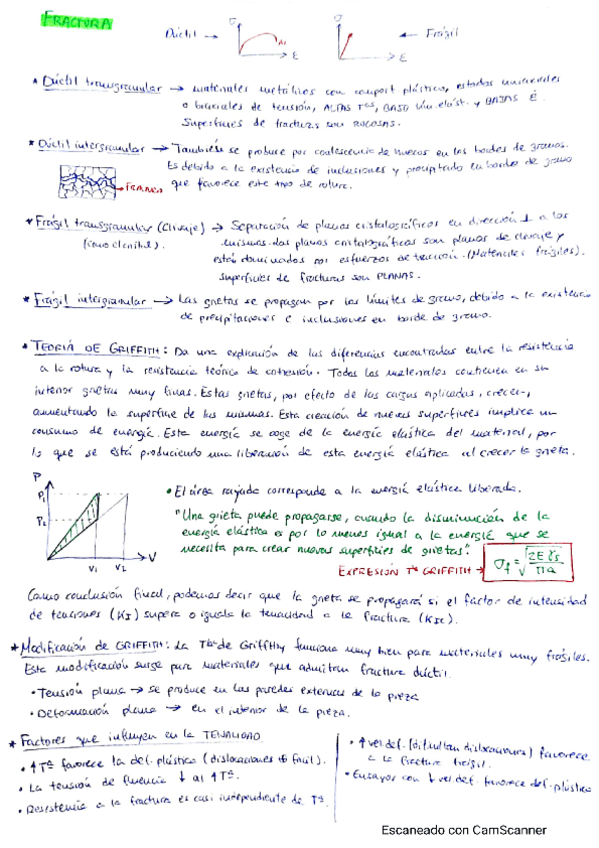 FRACTURA
Dúctil → σ ε
σ ε ← Frágil
* Dúctil transgranular → materiales metálicos con comport. plástico, estados uniaxiales
o biaxiales de tensión, ALTAS Tªs, BAJO lím. elást. y BAJAS ε̇.
Superficies de fractura son RUGOSAS.
* Dúctil intergranular → También se produce por coalescencia de huecos en los bordes de granos.
Es debido a la existencia de inclusiones y precipitado en borde de grano
que favorece este tipo de rotura.
* Frágil transgranular (Clivaje) → Separación de planos cristalográficos en dirección ⊥ a los
mismos. Los planos cristalográficos son planos de clivaje y
están dominados por esfuerzos de tracción. (Materiales frágiles).
superficies de fracturas son PLANAS.
* Frágil intergranular → Las grietas se propagan por los límites de grano, debido a la existencia
de precipitaciones e inclusiones en borde de grano.
* TEORÍA DE GRIFFITH: Da una explicación de las diferencias encontradas entre la resistencia
a la rotura y la resistencia teórica de cohesión. Todos los materiales contienen en su
interior grietas muy finas. Estas grietas, por efecto de las cargas aplicadas, crecen,
aumentando la superficie de las mismas. Esta creación de nuevas superficies implica un
consumo de energía. Esta energía se coge de la energía elástica del material, por
lo que se está produciendo una liberación de esta energía elástica al crecer la grieta.
P
P1
P2
V1 V2 V
• El área rayada corresponde a la energía elástica liberada.
"Una grieta puede propagarse, cuando la disminución de la
energía elástica es por lo menos igual a la energía que se
necesita para crear nuevas superficies de grietas".
EXPRESIÓN Tª GRIFFITH → σf = √(2Eγs / πa)
Como conclusión final, podemos decir que la grieta se propagará si el factor de intensidad
de tensiones (KI) supera o iguala la tenacidad a la fractura (KIC).
* Modificación de GRIFFITH: La Tª de Griffith funciona muy bien para materiales muy frágiles.
Esta modificación surge para materiales que admitan fractura dúctil.
• Tensión plana → se produce en las paredes externas de la pieza
• Deformación plana → en el interior de la pieza.
* Factores que influyen en la TENACIDAD
• ↑Tª favorece la def. plástica (dislocaciones + fácil).
• La tensión de fluencia ↓ al ↑Tª.
• Resistencia a la fractura es casi independiente de Tª.
• ↑ vel def. (dificultan dislocaciones) favorece
a la fractura frágil.
• Ensayos con ↓ vel def. favorece def. plástica
Escaneado con CamScanner